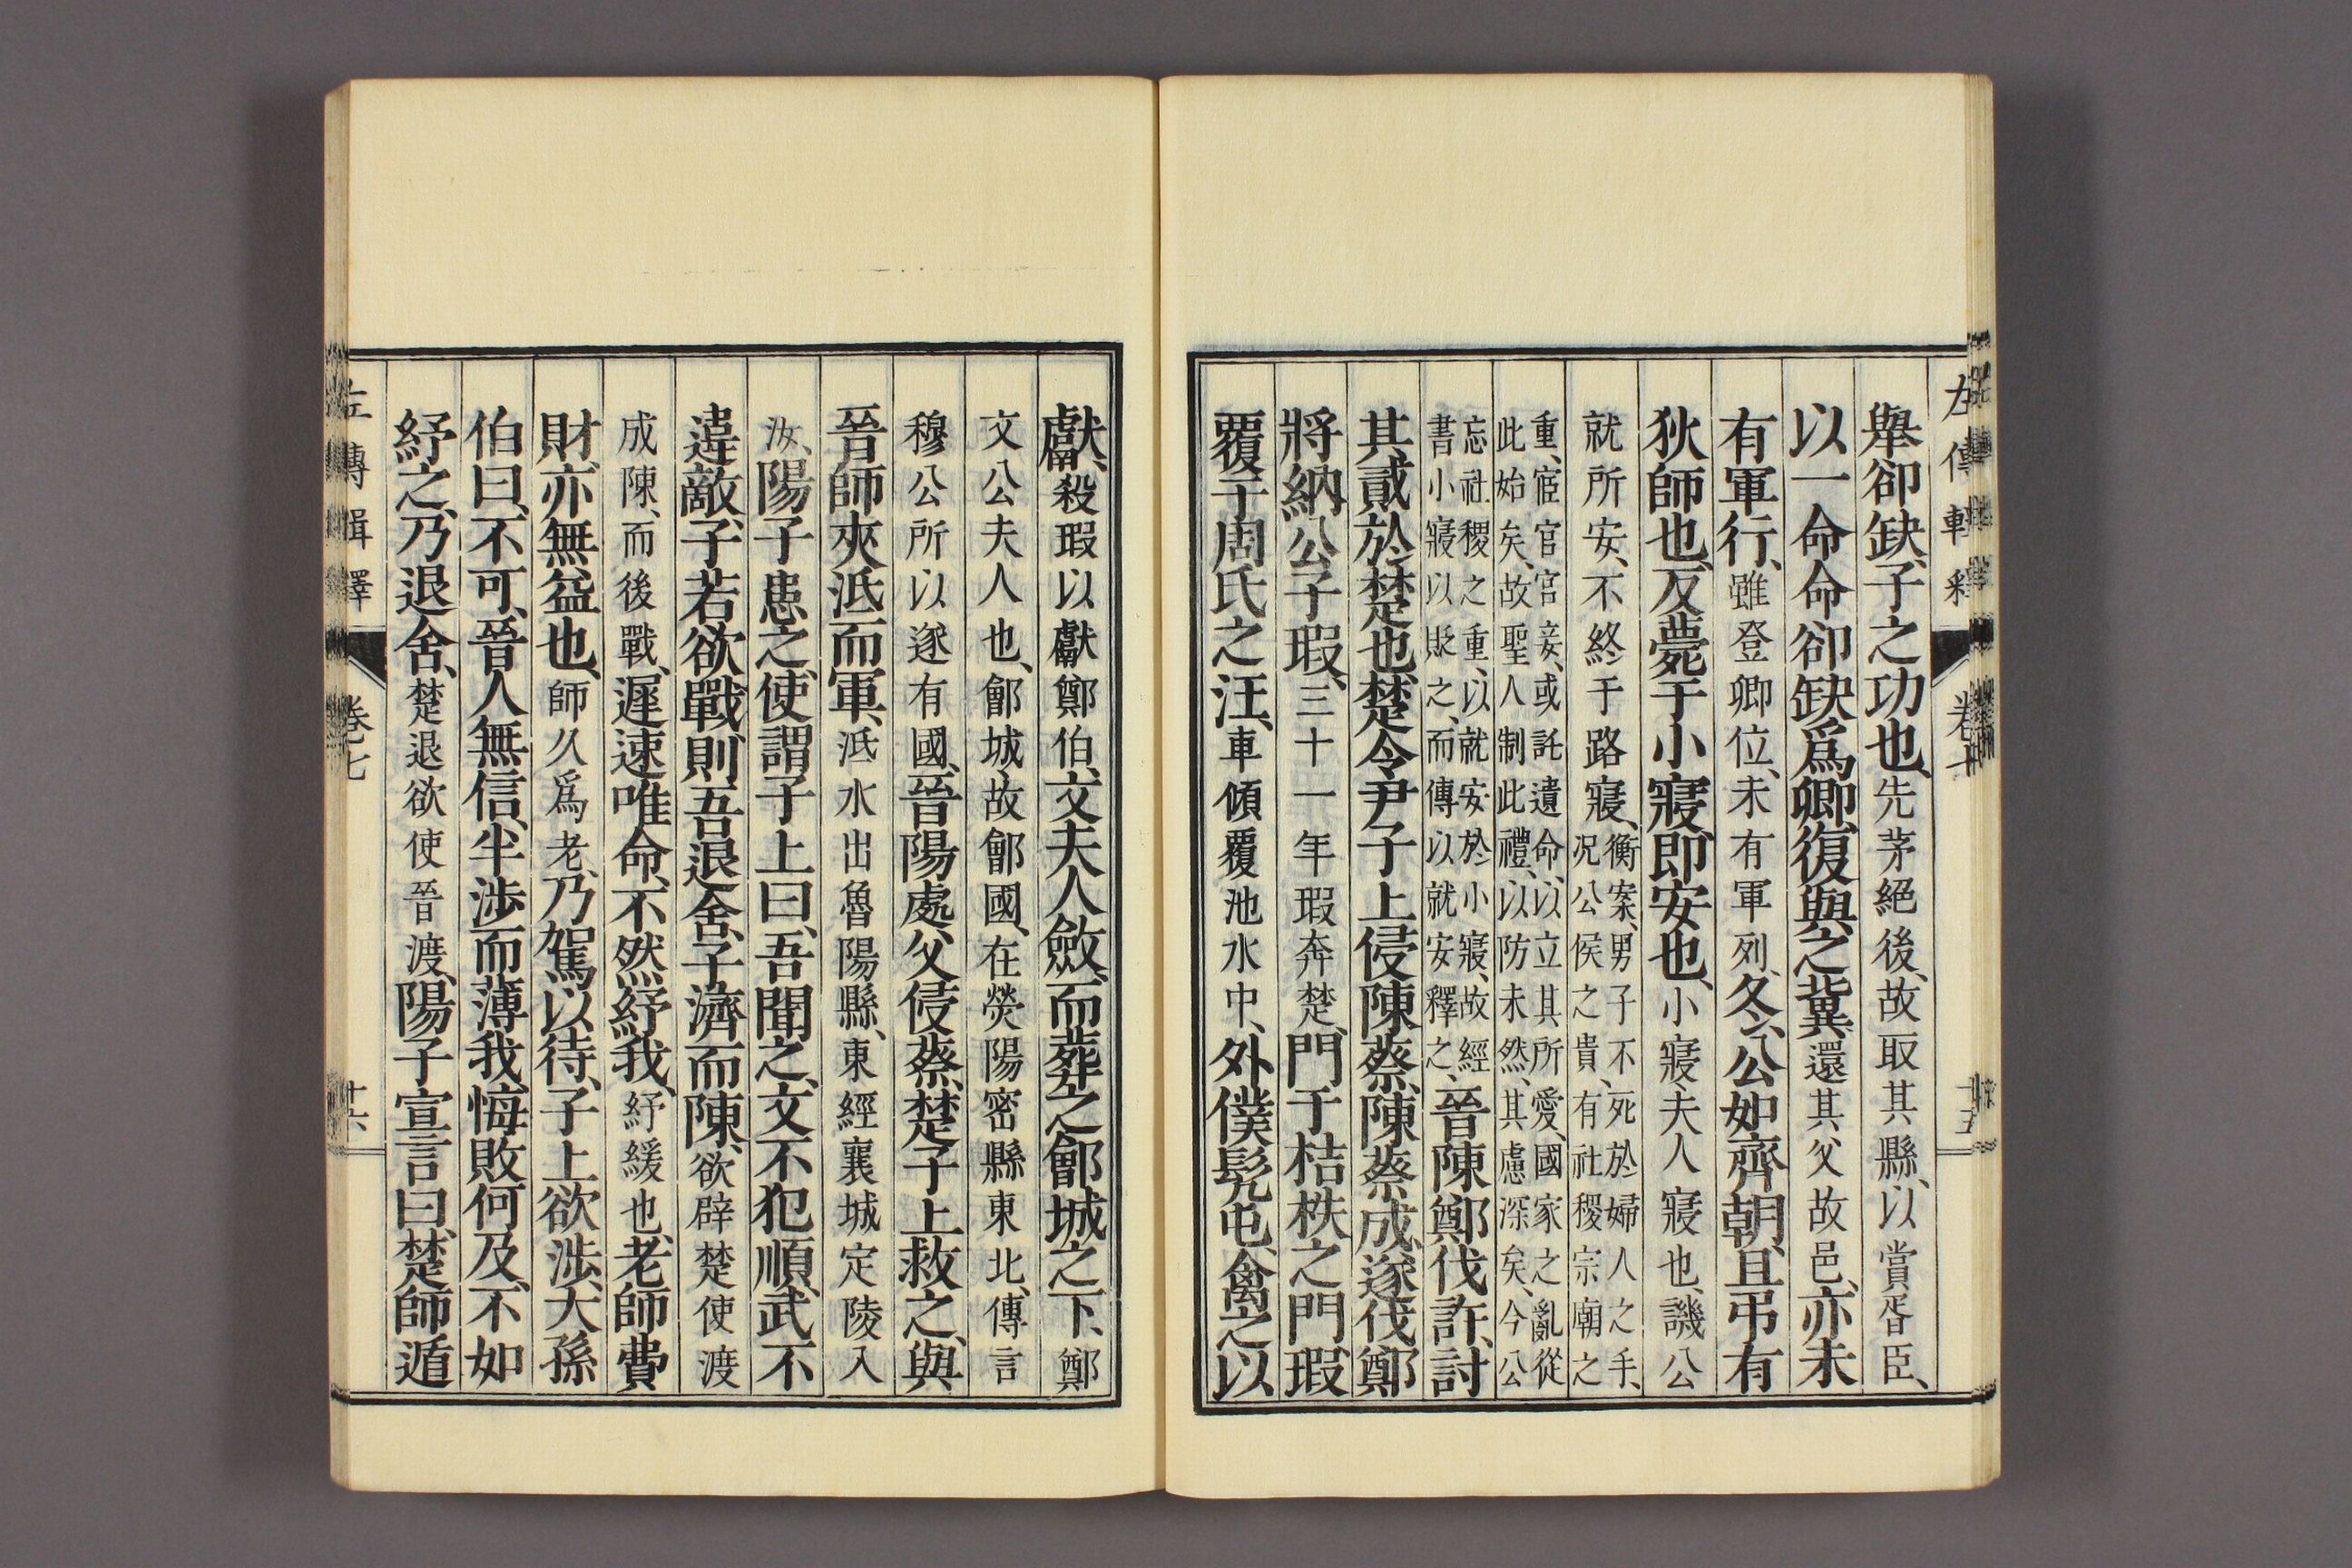 左傳輯釋 卷七 十五
舉卻缺、子之功也、先茅絕後、故取其縣、以賞胥臣、
以一命命卻缺爲卿、復與之冀、還其父故邑、亦未
有軍行、雖登卿位、未有軍列、冬、公如齊朝、且弔有
狄師也、反、薨于小寢、卽安也、小寢、夫人寢也、譏公
就所安、不終于路寢、衡案、男子不死於婦人之手、
况公侯之貴、有社稷宗廟之
重、宦官官妾、或託遺命、以立其所愛、國家之亂從
此始矣、故聖人制此禮、以防未然、其慮深矣、今公
忘社稷之重、以就安於小寢、故經
書小寢以貶之、而傳以就安釋之、晉陳鄭伐許、討
其貳於楚也、楚令尹子上侵陳蔡、陳蔡成、遂伐鄭
將納公子瑕、三十一年瑕奔楚、門于桔柣之門、瑕
覆于周氏之汪、車傾覆池水中、外僕髡屯、禽之以
獻、殺瑕以獻鄭伯、文夫人斂、而葬之鄶城之下、鄭
文公夫人也、鄶城、故鄶國、在熒陽密縣東北、傳言
穆公所以遂有國、晉陽處父侵蔡、楚子上救之、與
晉師夾泜而軍、泜水出魯陽縣、東經襄城定陵入
汝、陽子患之、使謂子上曰、吾聞之、文不犯順、武不
違敵、子若欲戰、則吾退舍、子濟而陳、欲辟楚使渡
成陳、而後戰、遲速唯命、不然紓我、紓緩也、老師費
財、亦無益也、師久爲老、乃駕以待、子上欲涉、大孫
伯曰、不可、晉人無信、半涉而薄我、悔敗何及、不如
紓之、乃退舍、楚退欲使晉渡、陽子宣言曰、楚師遁
左傳輯釋 卷七 十六